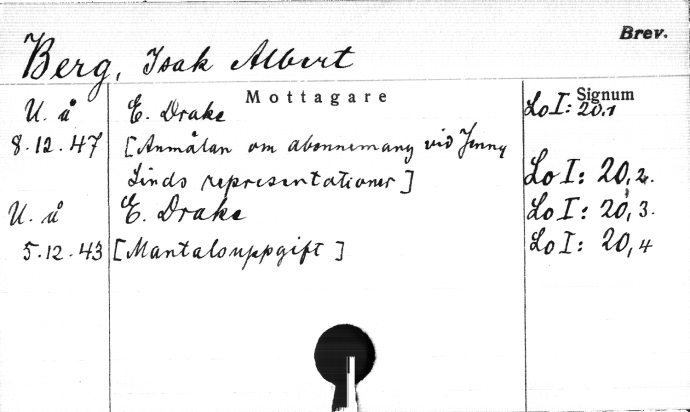 Brev.
Berg, Isak Albert
Mottagare Signum
U. å E. Drake Lo I: 20.1
8.12.47 [Anmälan om abonnemang vid Jenny
Linds representationer] Lo I: 20,2.
U. å E. Drake Lo I: 20,3.
5.12.43 [Mantalsuppgift] Lo I: 20,4